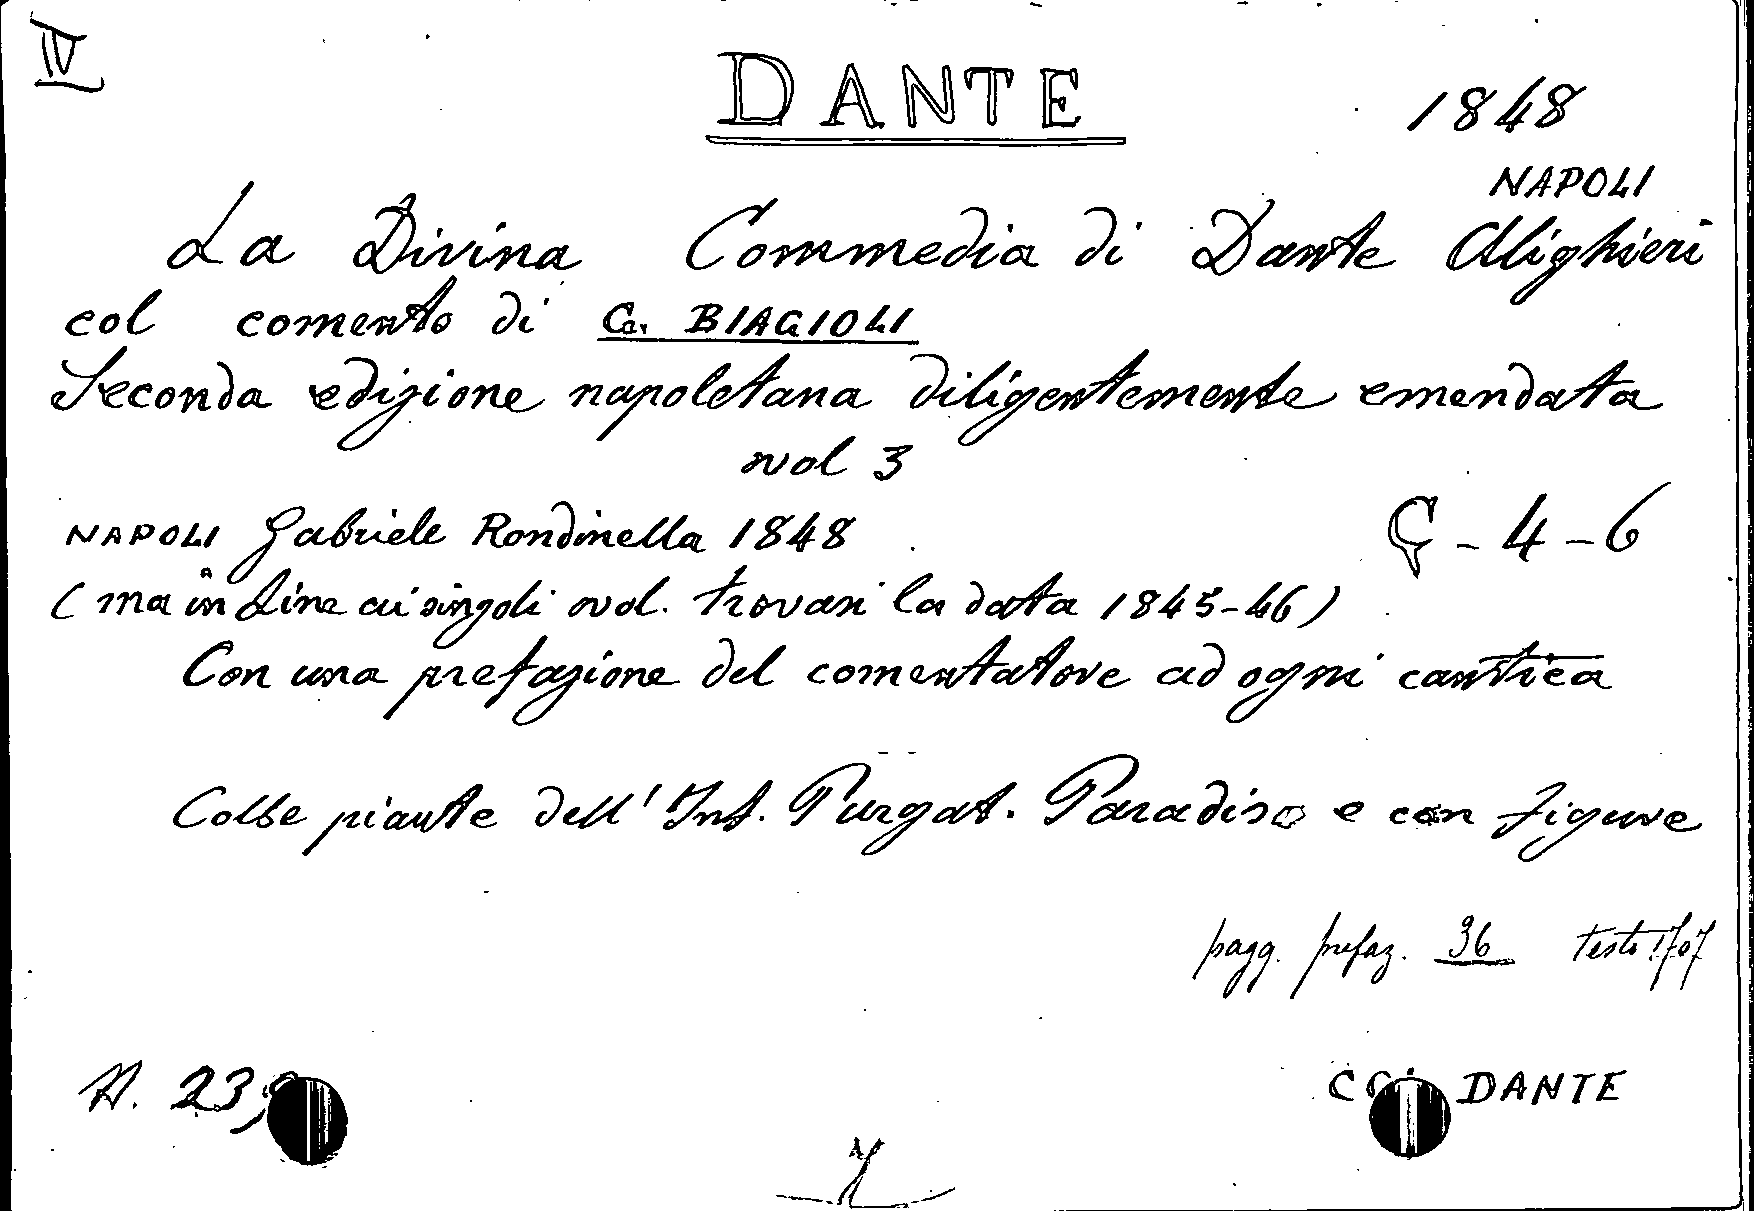 IV
DANTE
1848
NAPOLI
La Divina Commedia di Dante Alighieri
col comento di G. BIAGIOLI
Seconda edizione napoletana diligentemente emendata
vol 3
NAPOLI Gabriele Rondinella 1848
G - 4 - 6
(ma in fine ai singoli vol. trovasi la data 1845-46)
Con una prefazione del comentatore ad ogni cantica
Colle piante dell' Inf. Purgat. Paradiso e con figure
pagg. prefaz. 36 testo 1707
N. 23
DANTE